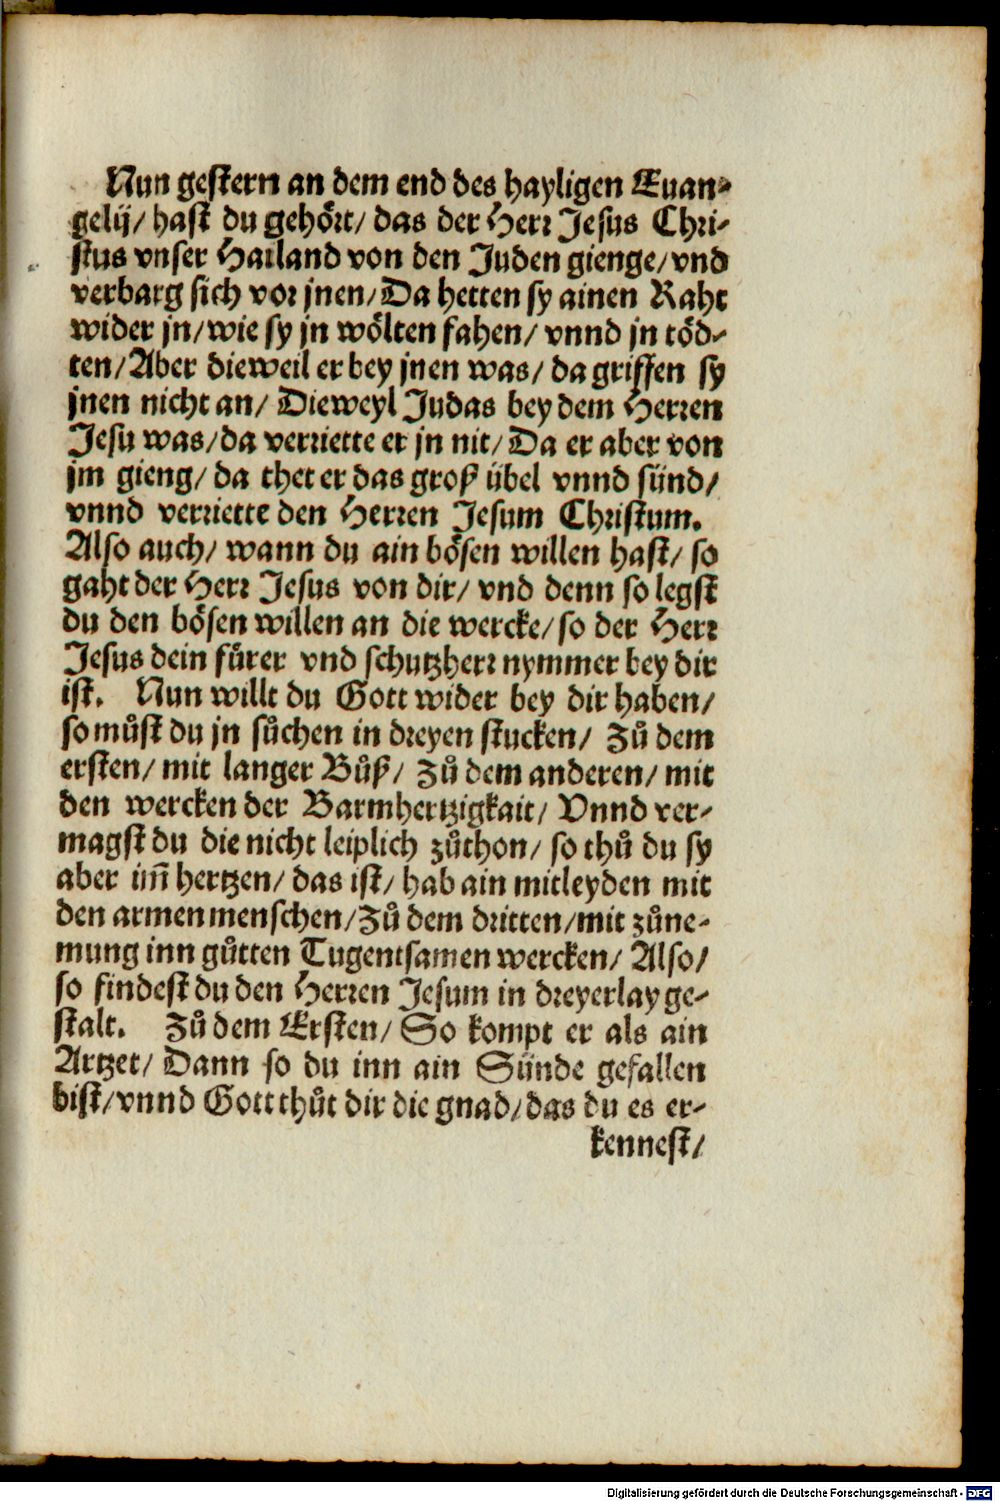 Nun gestern an dem end des hayligen Euan-
gelij/ hast du gehört/ das der Herr Jesus Chri-
stus vnser Hailand von den Juden gienge/ vnd
verbarg sich vor jnen/ Da hetten sy ainen Raht
wider jn/ wie sy jn wölten fahen/ vnnd jn töd-
ten/ Aber dieweil er bey jnen was/ da griffen sy
jnen nicht an/ Dieweyl Judas bey dem Herren
Jesu was/ da verriette er jn nit/ Da er aber von
jm gieng/ da thet er das groß übel vnnd sünd/
vnnd verriette den Herren Jesum Christum.
Also auch/ wann du ain bösen willen hast/ so
gaht der Herr Jesus von dir/ vnd denn so legst
du den bösen willen an die wercke/ so der Herr
Jesus dein fürer vnd schutzherr nymmer bey dir
ist. Nun willt du Gott wider bey dir haben/
so můst du jn sůchen in dreyen stucken/ Zů dem
ersten/ mit langer Bůß/ Zů dem anderen/ mit
den wercken der Barmhertzigkait/ Vnnd ver-
magst du die nicht leiplich zůthon/ so thů du sy
aber im̃ hertzen/ das ist/ hab ain mitleyden mit
den armen menschen/ Zů dem dritten/ mit zůne-
mung inn gůtten Tugentsamen wercken/ Also/
so findest du den Herren Jesum in dreyerlay ge-
stalt. Zů dem Ersten/ So kompt er als ain
Artzet/ Dann so du inn ain Sünde gefallen
bist/ vnnd Gott thůt dir die gnad/ das du es er-
kennest/
Digitalisierung gefördert durch die Deutsche Forschungsgemeinschaft - DFG